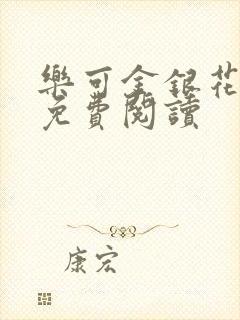 樂可金銀花
免費閱讀
康宏